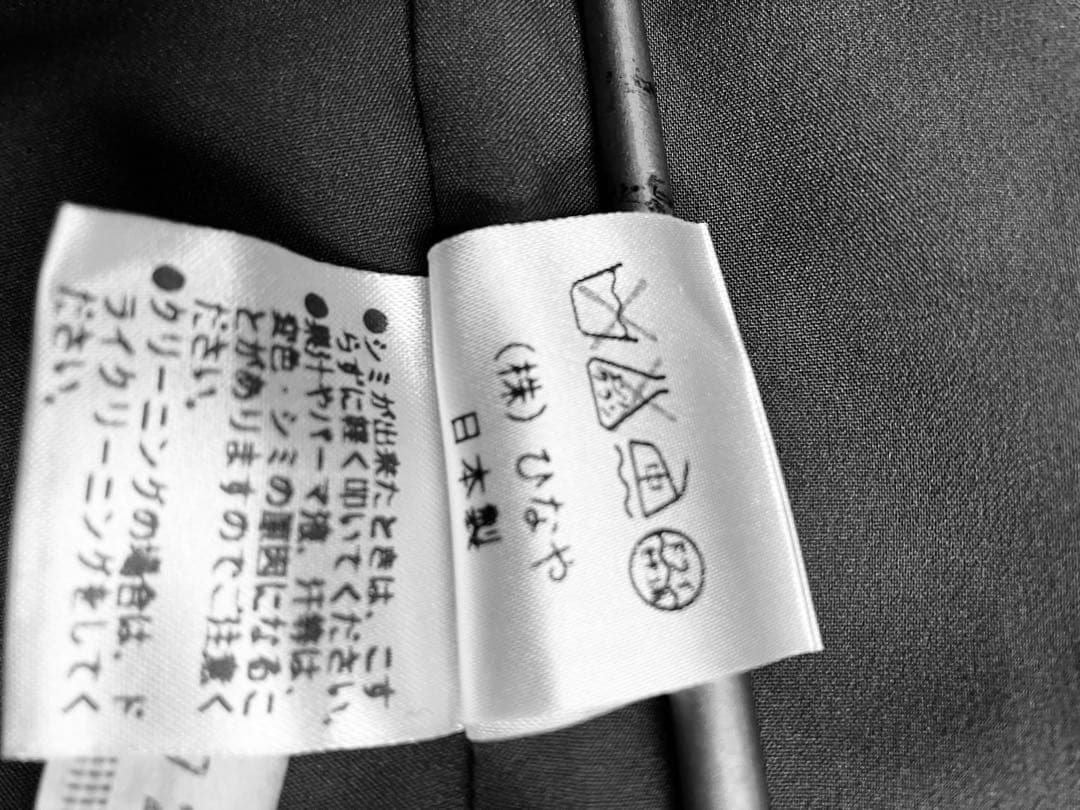 中
(株)ひなや
日本製
●シミが出来たときは、こす
らずに軽く叩いてください。
●果汁やパーマ液、汗等は、
変色・シミの原因になるこ
とがありますのでご注意く
ださい。
●クリーニングの場合は、ド
ライクリーニングをしてく
ださい。